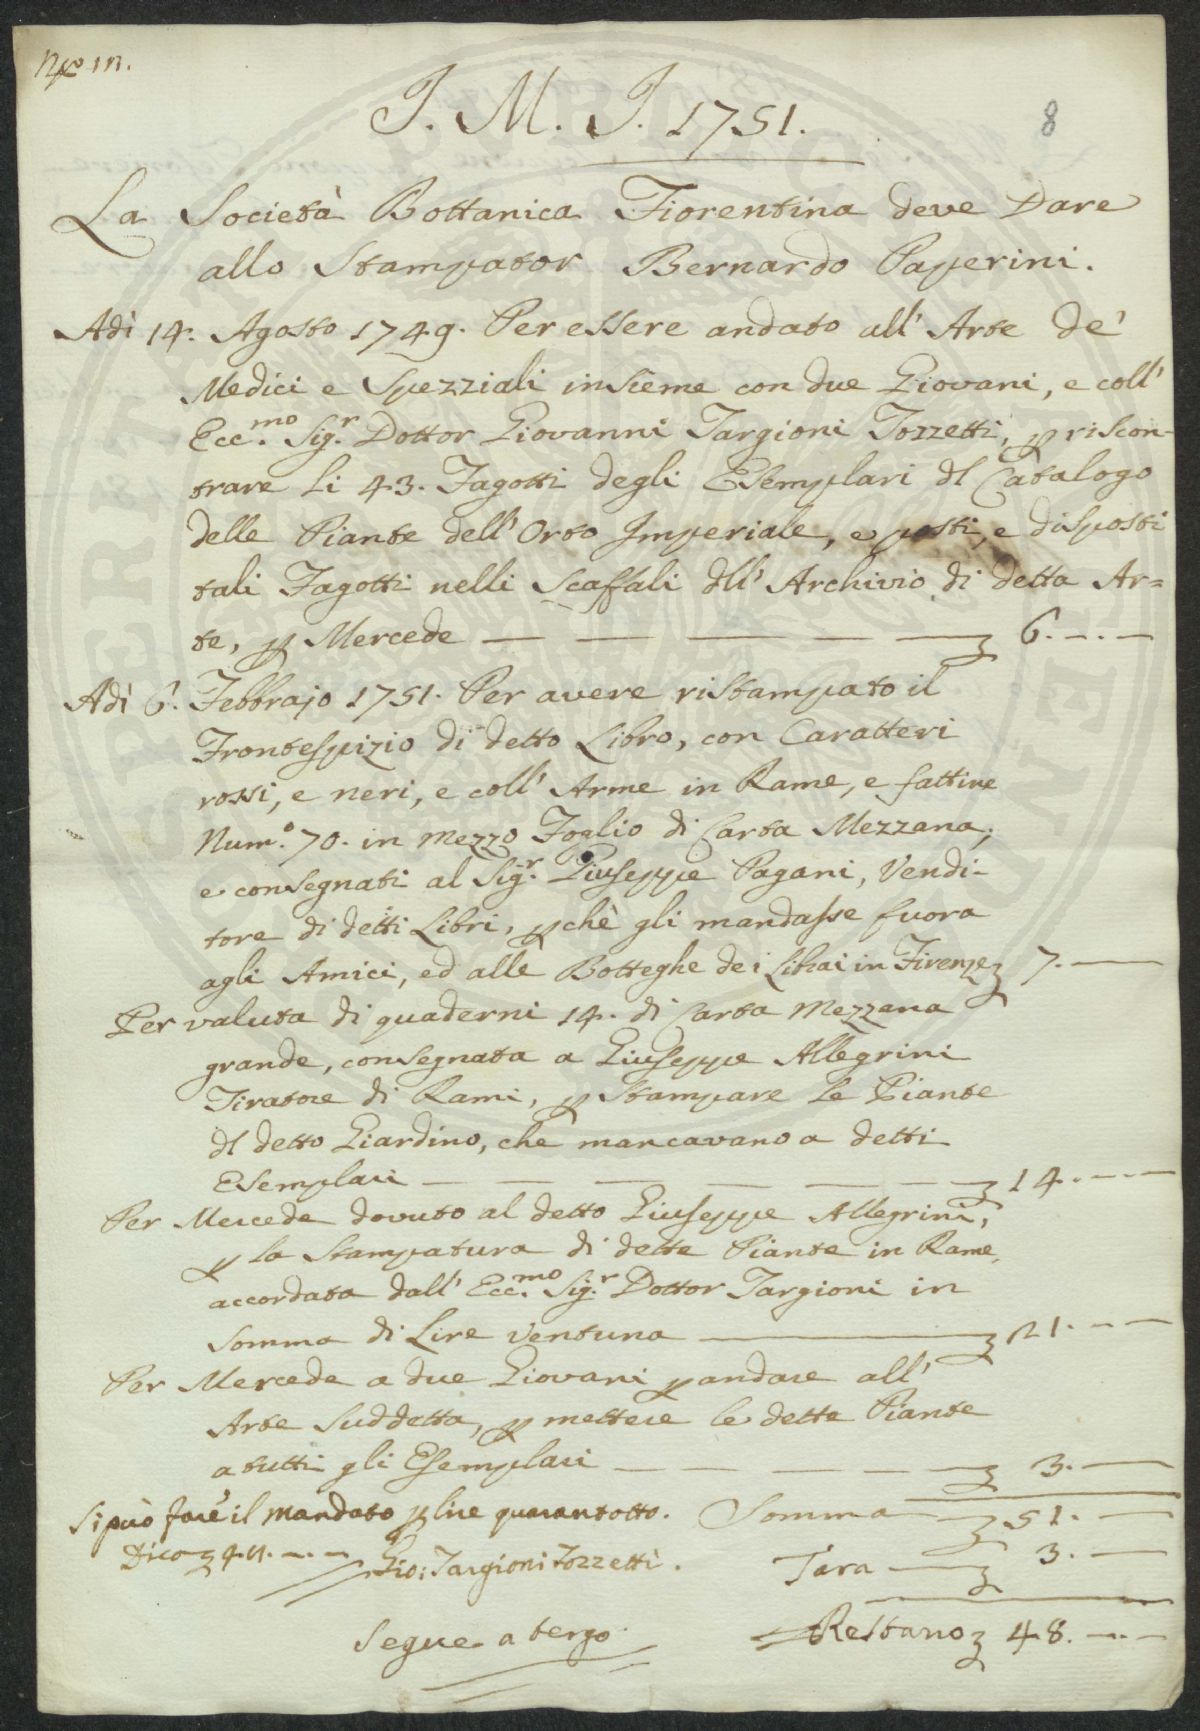 J. M. J. 1751.
8
La Società Bottanica Fiorentina deve Dare
allo Stampator Bernardo Paperini.
Adì 14. Agosto 1749. Per essere andato all' Arte de'
Medici e Spezziali insieme con due Giovani, e coll'
Ecc.mo Sig.r Dottor Giovanni Targioni Tozzetti, p riscon-
trare li 43. Fagotti degli Esemplari dl Catalogo
delle Piante dell' Orto Imperiale, e posti, e disposti
tali Fagotti nelli Scaffali dll' Archivio di detta Ar=
te, p Mercede — — — — — 6. — . —
Adì 6. Febbrajo 1751. Per avere ristampato il
Frontespizio di detto Libro, con Caratteri
rossi, e neri, e coll' Arme in Rame, e fattine
Num.o 70. in mezzo Foglio di Carta Mezzana,
e consegnati al Sig.r Giuseppe Pagani, Vendi-
tore di detti Libri, pchè gli mandasse fuora
agli Amici, ed alle Botteghe dei Librai in Firenze 7. —
Per valuta di quaderni 14. di Carta Mezzana
grande, consegnata a Giuseppe Allegrini
Tiratore di Rami, p Stampare le Piante
dl detto Giardino, che mancavano a detti
Esemplari — — — — — 14. — . —
Per Mercede dovuto al detto Giuseppe Allegrini,
p la Stampatura di dette Piante in Rame,
accordata dall' Ecc.mo Sig.r Dottor Targioni in
Somma di Lire Ventuna — 21. — . —
Per Mercede a due Giovani p andare all'
Arte Suddetta, p mettere le dette Piante
a tutti gli Esemplari — — — — 3. —
Si può fare il mandato p lire quarantotto. Somma — 51. —
Dico 48. — . — Gio: Targioni Tozzetti. Tara — 3. —
Segue a tergo. Restano 48. — . —